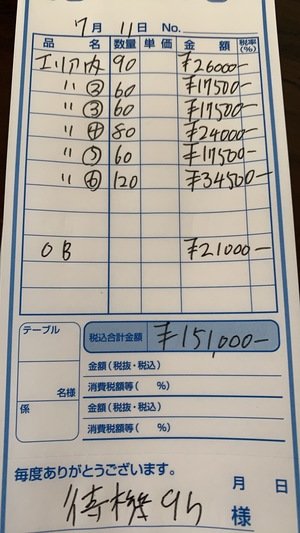 7月 11日 No.
品名 数量 単価 金額 税率(%)
エリア内 90 ¥26000-
〃 ② 60 ¥17500-
〃 ③ 60 ¥17500-
〃 ④ 80 ¥24000-
〃 ⑤ 60 ¥17500-
〃 ⑥ 120 ¥34500-
OB ¥21000-
テーブル 税込合計金額 ¥151,000-
金額(税抜・税込)
名様 消費税額等( %)
係 金額(税抜・税込)
消費税額等( %)
毎度ありがとうございます。 月 日
待機9h 様